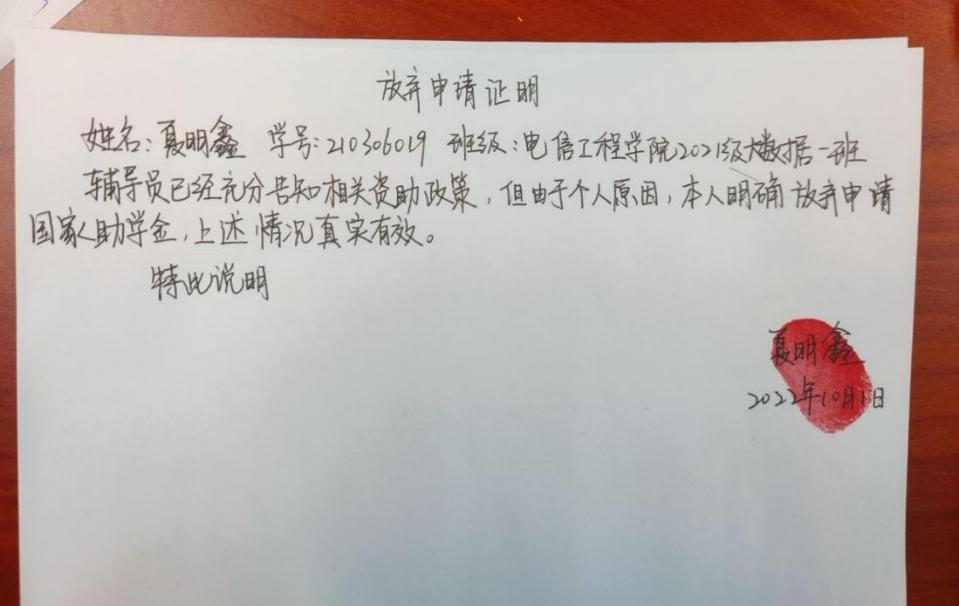 放弃申请证明
姓名：夏明鑫 学号：210306019 班级：电信工程学院2021级大数据一班
辅导员已经充分告知相关资助政策，但由于个人原因，本人明确放弃申请
国家助学金，上述情况真实有效。
特此说明
夏明鑫
2022年10月1日